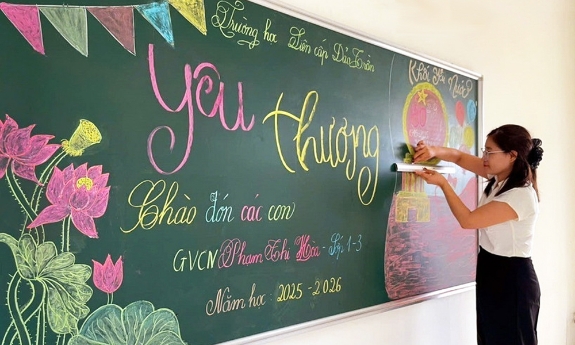 Trường học Liên cấp Đức Trân
Khởi Yêu Nước
yêu thương
Chào đón các con
GVCN Phạm Thị Hòa - Lớp 1-3
Năm học: 2025-2026